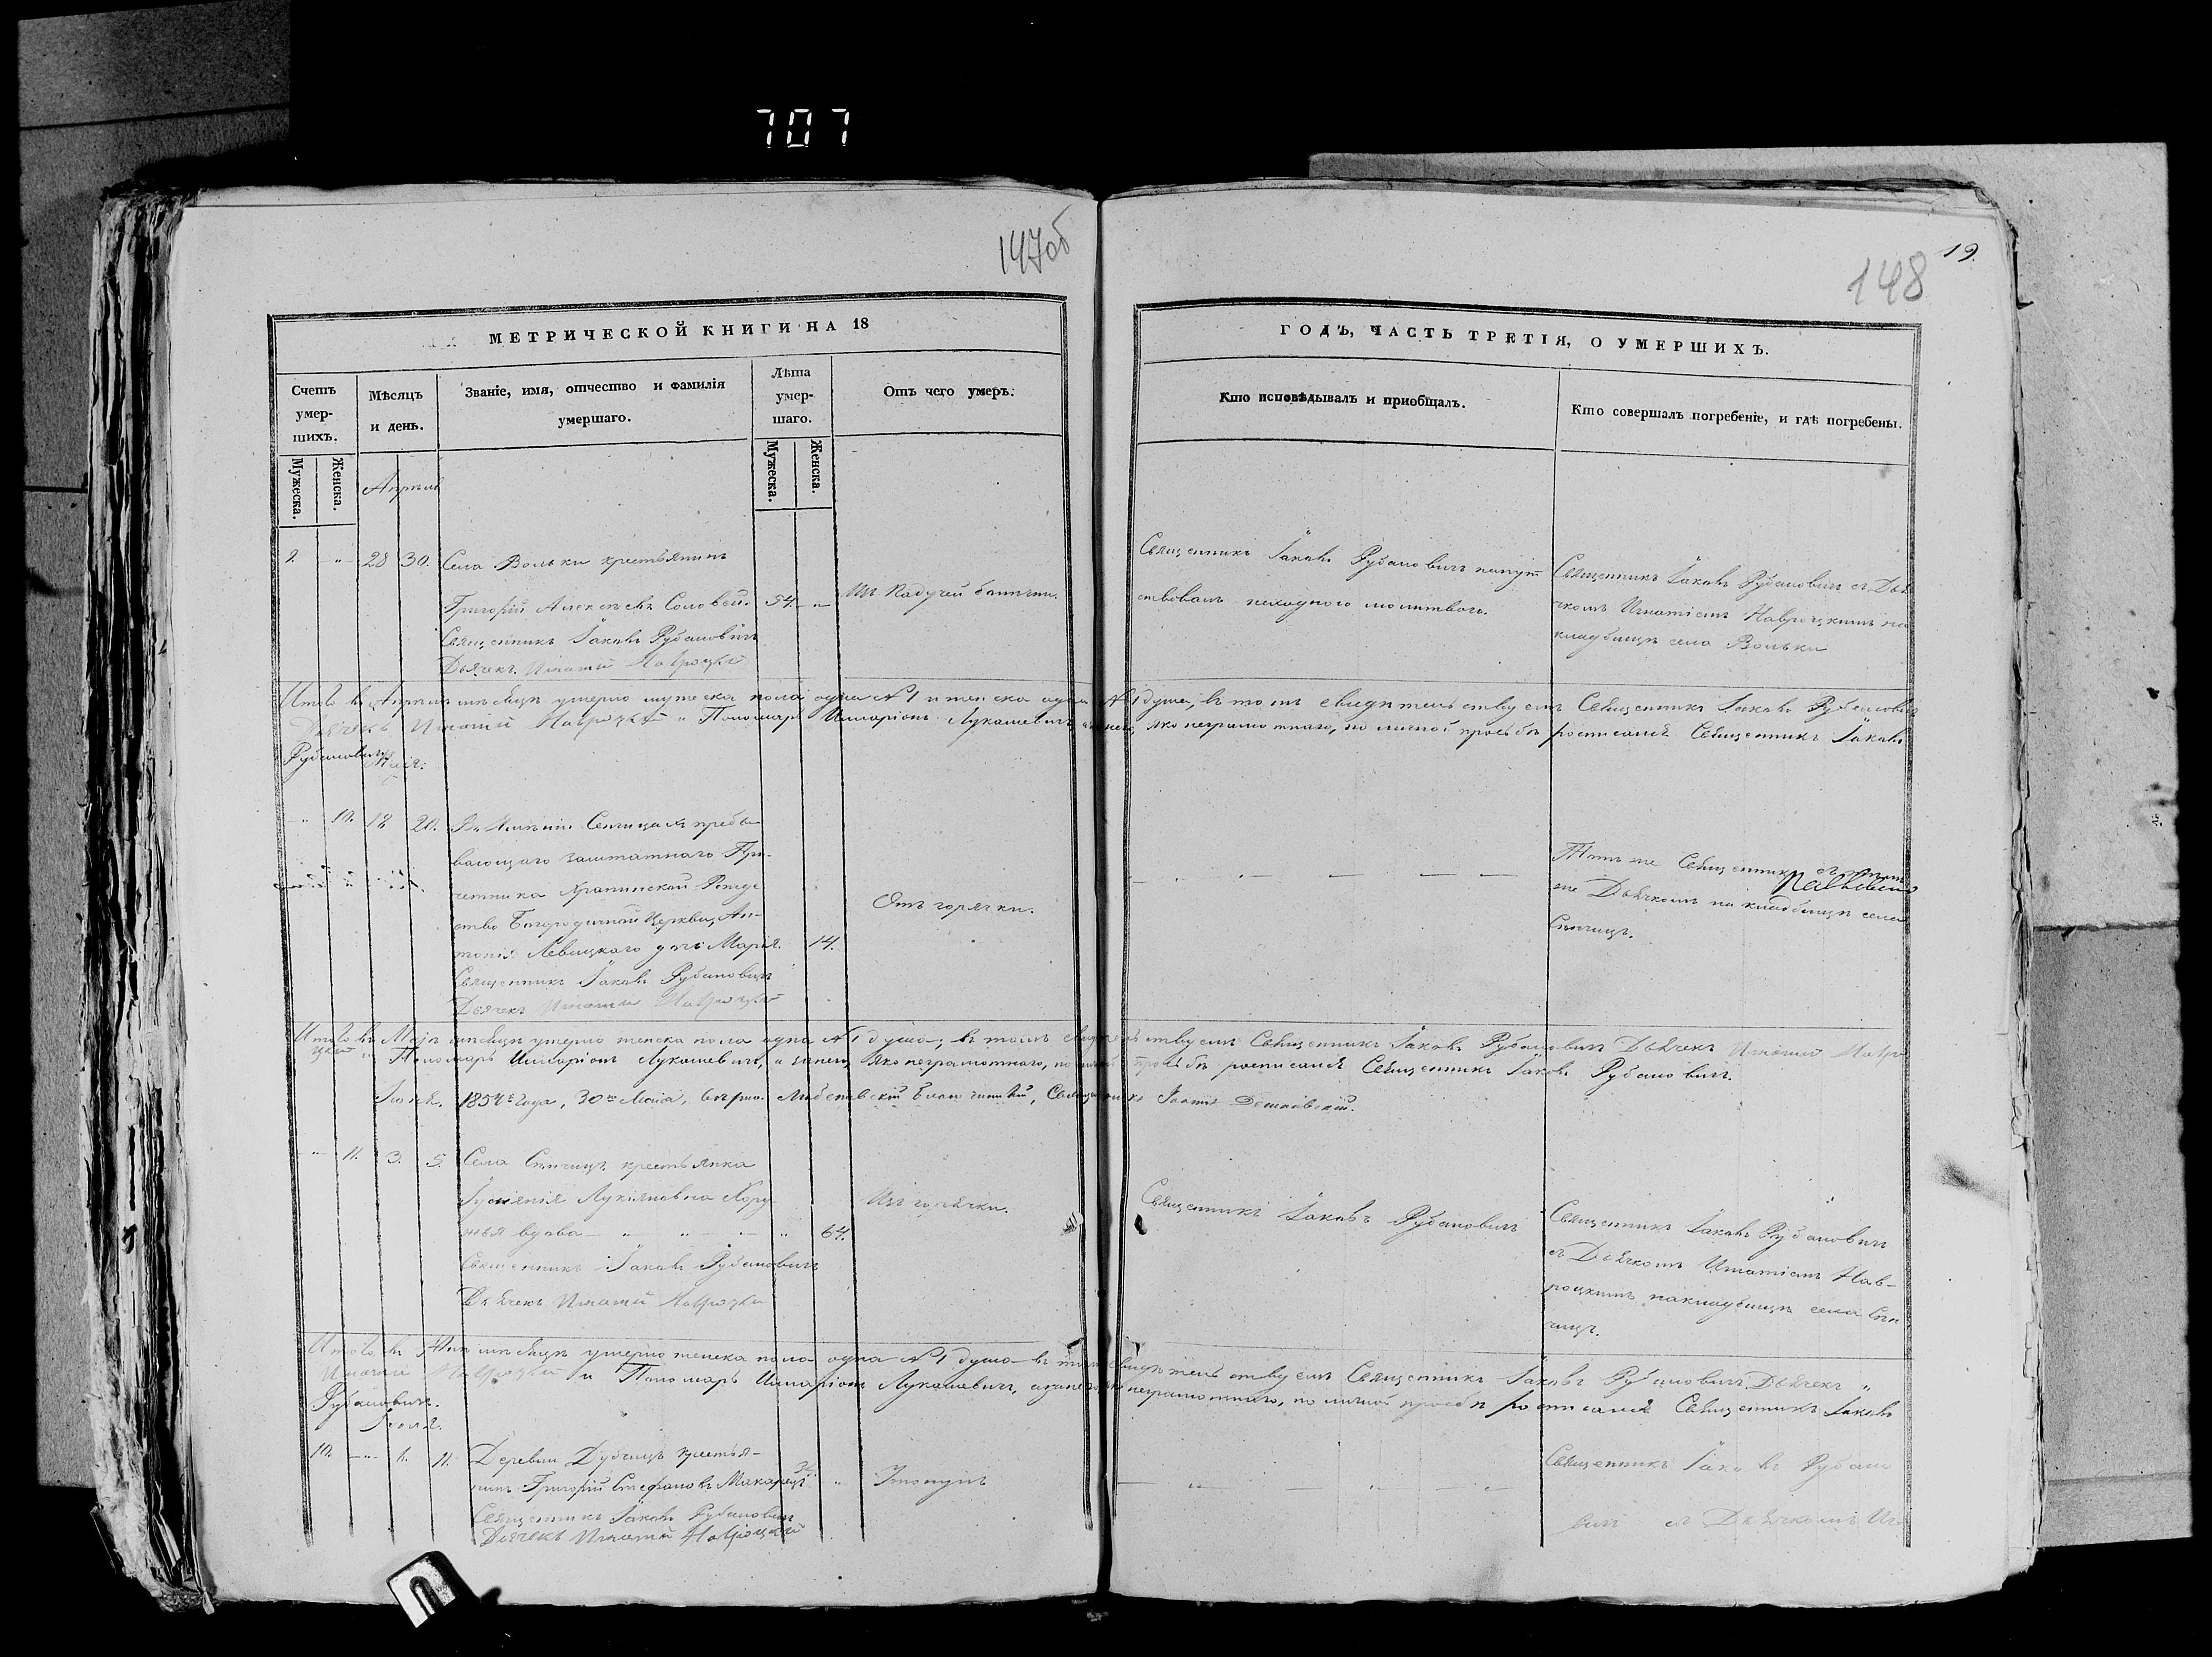 707
147об
148
19.
МЕТРИЧЕСКОЙ КНИГИ НА 18
ГОДЪ, ЧАСТЬ ТРЕТІЯ, О УМЕРШИХЪ.
Счетъ умер-
шихъ.
Мужеска.
Женска.
Мѣсяцъ
и день.
Званіе, имя, отчество и фамилія
умершаго.
Лѣта
умер-
шаго.
Мужеска.
Женска.
Отъ чего умеръ.
Кто исповѣдывалъ и приобщалъ.
Кто совершалъ погребеніе, и гдѣ погребены.
Апрѣль
9. " 28 30. Села Вольки крестьянинъ
Григорій Алексѣевъ Соловей. 54. "
Священникъ Іаковъ Рубановичъ
Дьячекъ Игнатій Навроцкій
Изъ падучей болѣзни.
Священникъ Іаковъ Рубановичъ напут
ствовалъ исходною молитвою.
Священникъ Іаковъ Рубановичъ съ Дья
чкомъ Игнатіемъ Навроцкимъ на
кладбищѣ села Вольки
Итого въ Апрѣлѣ мѣсяцѣ умерло мужеска пола одна № 1 и женска одна № 1 душа, въ томъ свидѣтельствуемъ Священникъ Іаковъ Рубановичъ
Дьячекъ Игнатій Навроцкій " Пономарь Илларіонъ Лукашевичъ, а вмѣсто его, яко неграмотнаго, по личной просьбѣ росписался Священникъ Іаковъ
Рубановичъ
Маія.
" 10. 18 20. Въ Имѣніи Спѣчицахъ пребы-
вающаго заштатнаго При-
четника Храпинской Рожде
ство Богородичной Церкви, Ан-
тонія Левицкаго дочь Марія. 14.
Священникъ Іаковъ Рубановичъ
Дьячекъ Игнатій Навроцкій
Отъ горячки.
Тотъ же Священникъ съ тѣмъ
же Дьячкомъ на кладбищѣ села
Спѣчицъ.
Итого въ Маіѣ мѣсяцѣ умерло женска пола одна № 1 душа; въ томъ свидѣтельствуемъ Священникъ Іаковъ Рубановичъ Дьячекъ Игнатій Навро
цкій " Пономарь Илларіонъ Лукашевичъ, а за него, яко неграмотнаго, по личной просьбѣ росписался Священникъ Іаковъ Рубановичъ.
Іюня. 1854 года, 30 Маія, вѣрно. Любешевскій Благочинный, Священникъ Іоаннъ Дешковскій.
" 11. 3. 5. Села Спѣчицъ крестьянка
Лукіяновна Хору
жая вдова " 64.
Священникъ Іаковъ Рубановичъ
Дьячекъ Игнатій Навроцкій
Изъ горячки.
Священникъ Іаковъ Рубановичъ
Священникъ Іаковъ Рубановичъ
съ Дьячкомъ Игнатіемъ Нав-
роцкимъ на кладбищѣ села Спѣ
чицъ.
Итого въ Іюнѣ мѣсяцѣ умерло женска пола одна № 1 душа въ томъ свидѣтельствуемъ Священникъ Іаковъ Рубановичъ. Дьячекъ "
Игнатій Навроцкій и Пономарь Илларіонъ Лукашевичъ, а за него яко неграмотнаго, по личной просьбѣ росписался Священникъ Іаковъ
Рубановичъ.
Іюля.
10. " 11. Деревни Дубчицъ крестья-
нинъ Григорій Стефановъ Макарецъ "
Священникъ Іаковъ Рубановичъ
Дьячекъ Игнатій Навроцкій
Утонулъ
Священникъ Іаковъ Рубано
вичъ съ Дьячкомъ Иг